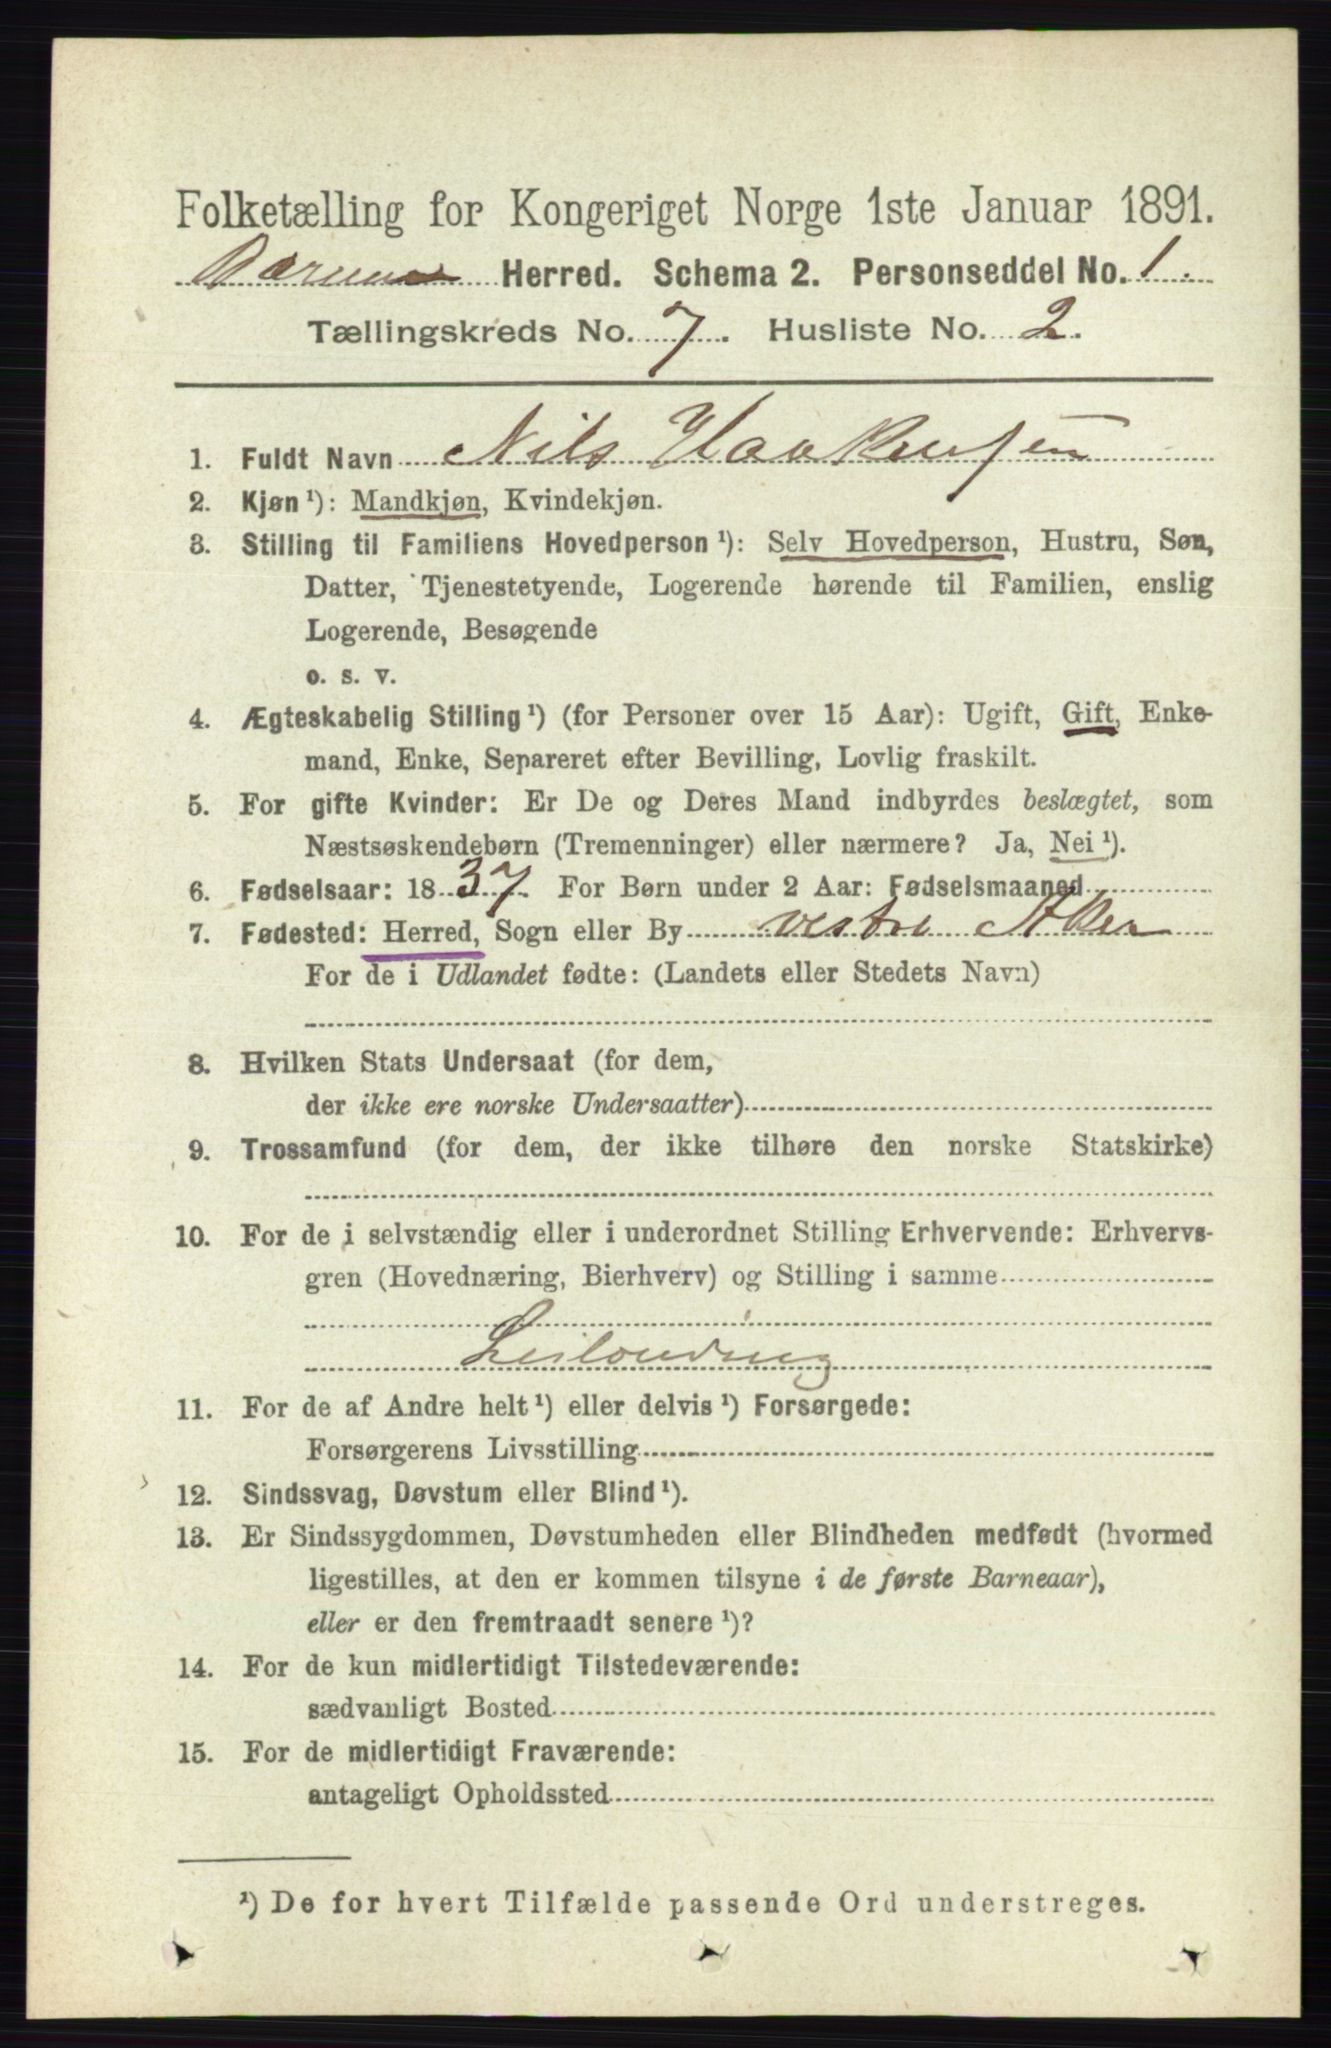 Folketælling for Kongeriget Norge 1ste Januar 1891.
Bærums Herred. Schema 2. Personseddel No. 1.
Tællingskreds No. 7. Husliste No. 2.
1. Fuldt Navn Nils Haakensen
2. Kjøn ¹): Mandkjøn, Kvindekjøn.
3. Stilling til Familiens Hovedperson ¹): Selv Hovedperson, Hustru, Søn,
Datter, Tjenestetyende, Logerende hørende til Familien, enslig
Logerende, Besøgende
o. s. v.
4. Ægteskabelig Stilling ¹) (for Personer over 15 Aar): Ugift, Gift, Enke-
mand, Enke, Separeret efter Bevilling, Lovlig fraskilt.
5. For gifte Kvinder: Er De og Deres Mand indbyrdes beslægtet, som
Næstsøskendebørn (Tremenninger) eller nærmere? Ja, Nei ¹).
6. Fødselsaar: 1837. For Børn under 2 Aar: Fødselsmaaned
7. Fødested: Herred, Sogn eller By vestre Aker
For de i Udlandet fødte: (Landets eller Stedets Navn)
8. Hvilken Stats Undersaat (for dem,
der ikke ere norske Undersaatter)
9. Trossamfund (for dem, der ikke tilhøre den norske Statskirke)
10. For de i selvstændig eller i underordnet Stilling Erhvervende: Erhvervs-
gren (Hovednæring, Bierhverv) og Stilling i samme
Leilænding
11. For de af Andre helt ¹) eller delvis ¹) Forsørgede:
Forsørgerens Livsstilling
12. Sindssvag, Døvstum eller Blind ¹).
13. Er Sindssygdommen, Døvstumheden eller Blindheden medfødt (hvormed
ligestilles, at den er kommen tilsyne i de første Barneaar),
eller er den fremtraadt senere ¹)?
14. For de kun midlertidigt Tilstedeværende:
sædvanligt Bosted
15. For de midlertidigt Fraværende:
antageligt Opholdssted
¹) De for hvert Tilfælde passende Ord understreges.